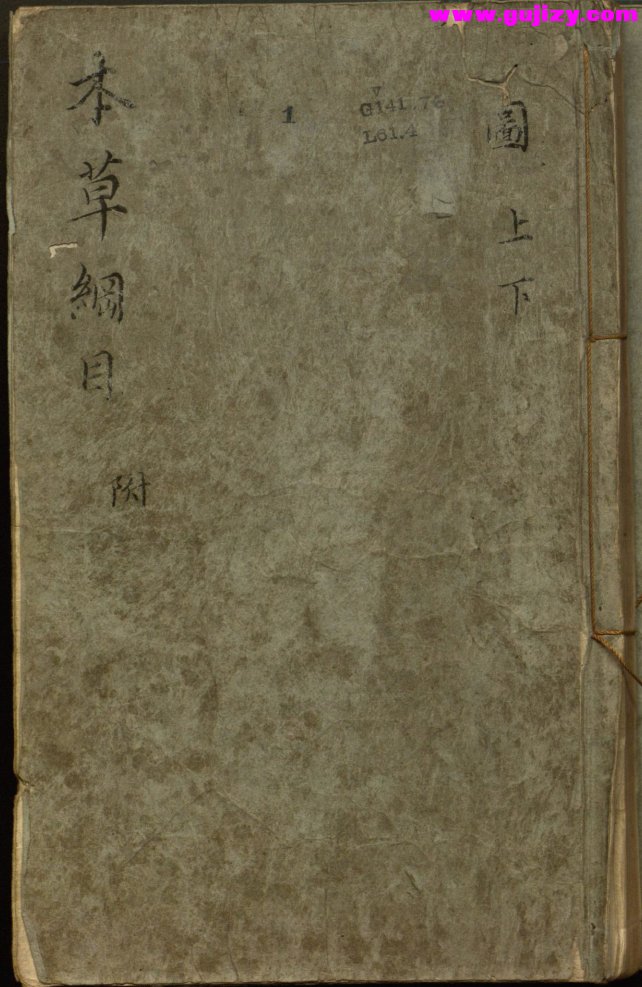 www.gujtzy.com
圖上下
V
G141.76
L61.4
1
本草綱目
附